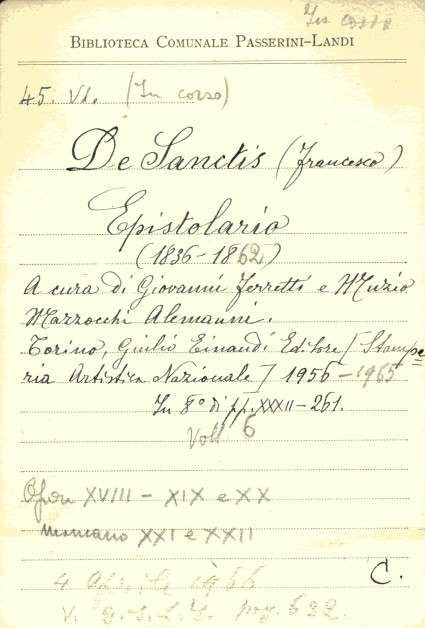 In corso
BIBLIOTECA COMUNALE PASSERINI-LANDI
45. VI. (In corso)
De Sanctis (Francesco)
Epistolario
(1836-1862)
A cura di Giovanni Ferretti e Muzio
Mazzocchi Alemanni.
Torino, Giulio Einaudi Editore [Stampe=
ria Artistica Nazionale] 1956-1965
In 8° di pp. XXXII-261.
Voll. 6
Opere XVIII - XIX e XX
mancano XXI e XXII
4 Aprile 1966
C.
V. pag. 622.